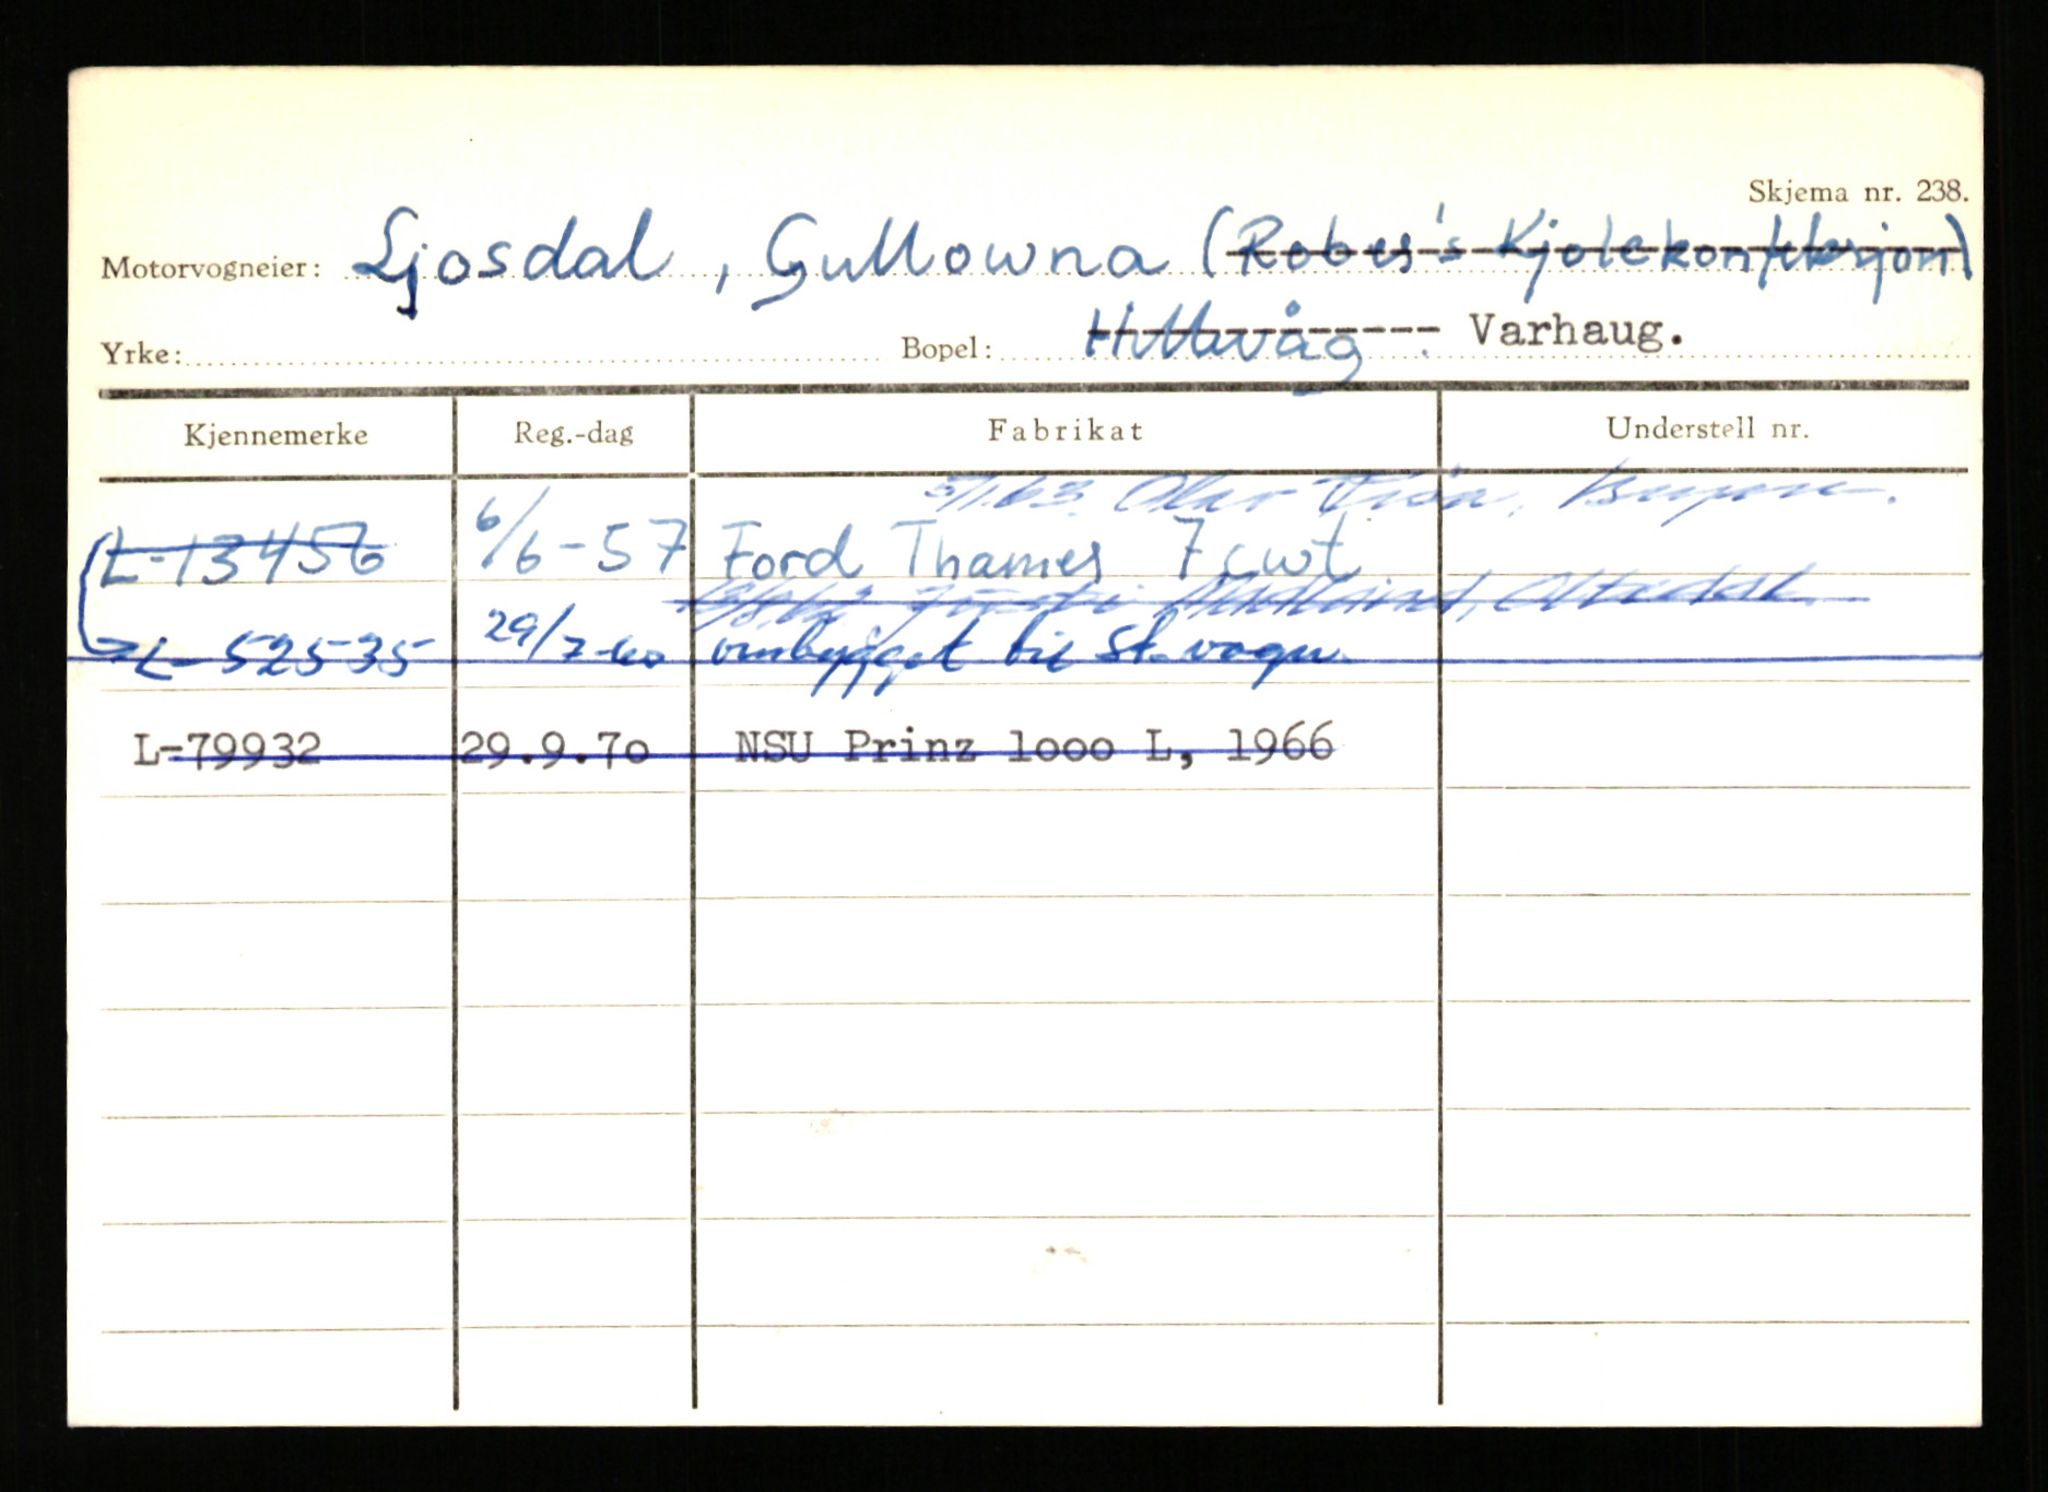 Skjema nr. 238.
Motorvogneier: Ljosdal, Gullowna (Robes's Kjolekonfeksjon)
Yrke: Bopel: Hillevåg Varhaug.
Kjennemerke Reg.-dag Fabrikat Understell nr.
L-13456 6/6-57 Ford Thames 7 cwt
L-52535 29/7-60 ombygget til St.vogn
L-79932 29.9.7o NSU Prinz 1ooo L, 1966